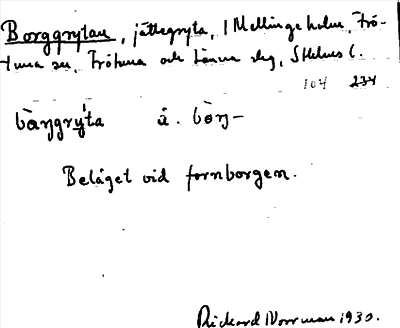 Borggrytan, jättegryta, 1 Mellingeholm, Frö-
tuna sn, Frötuna och Länna skg, Sthlms l.
104 234
bàŋgrẏta å. bòŋ-
Beläget vid fornborgen.
Rickard Norrman 1930.